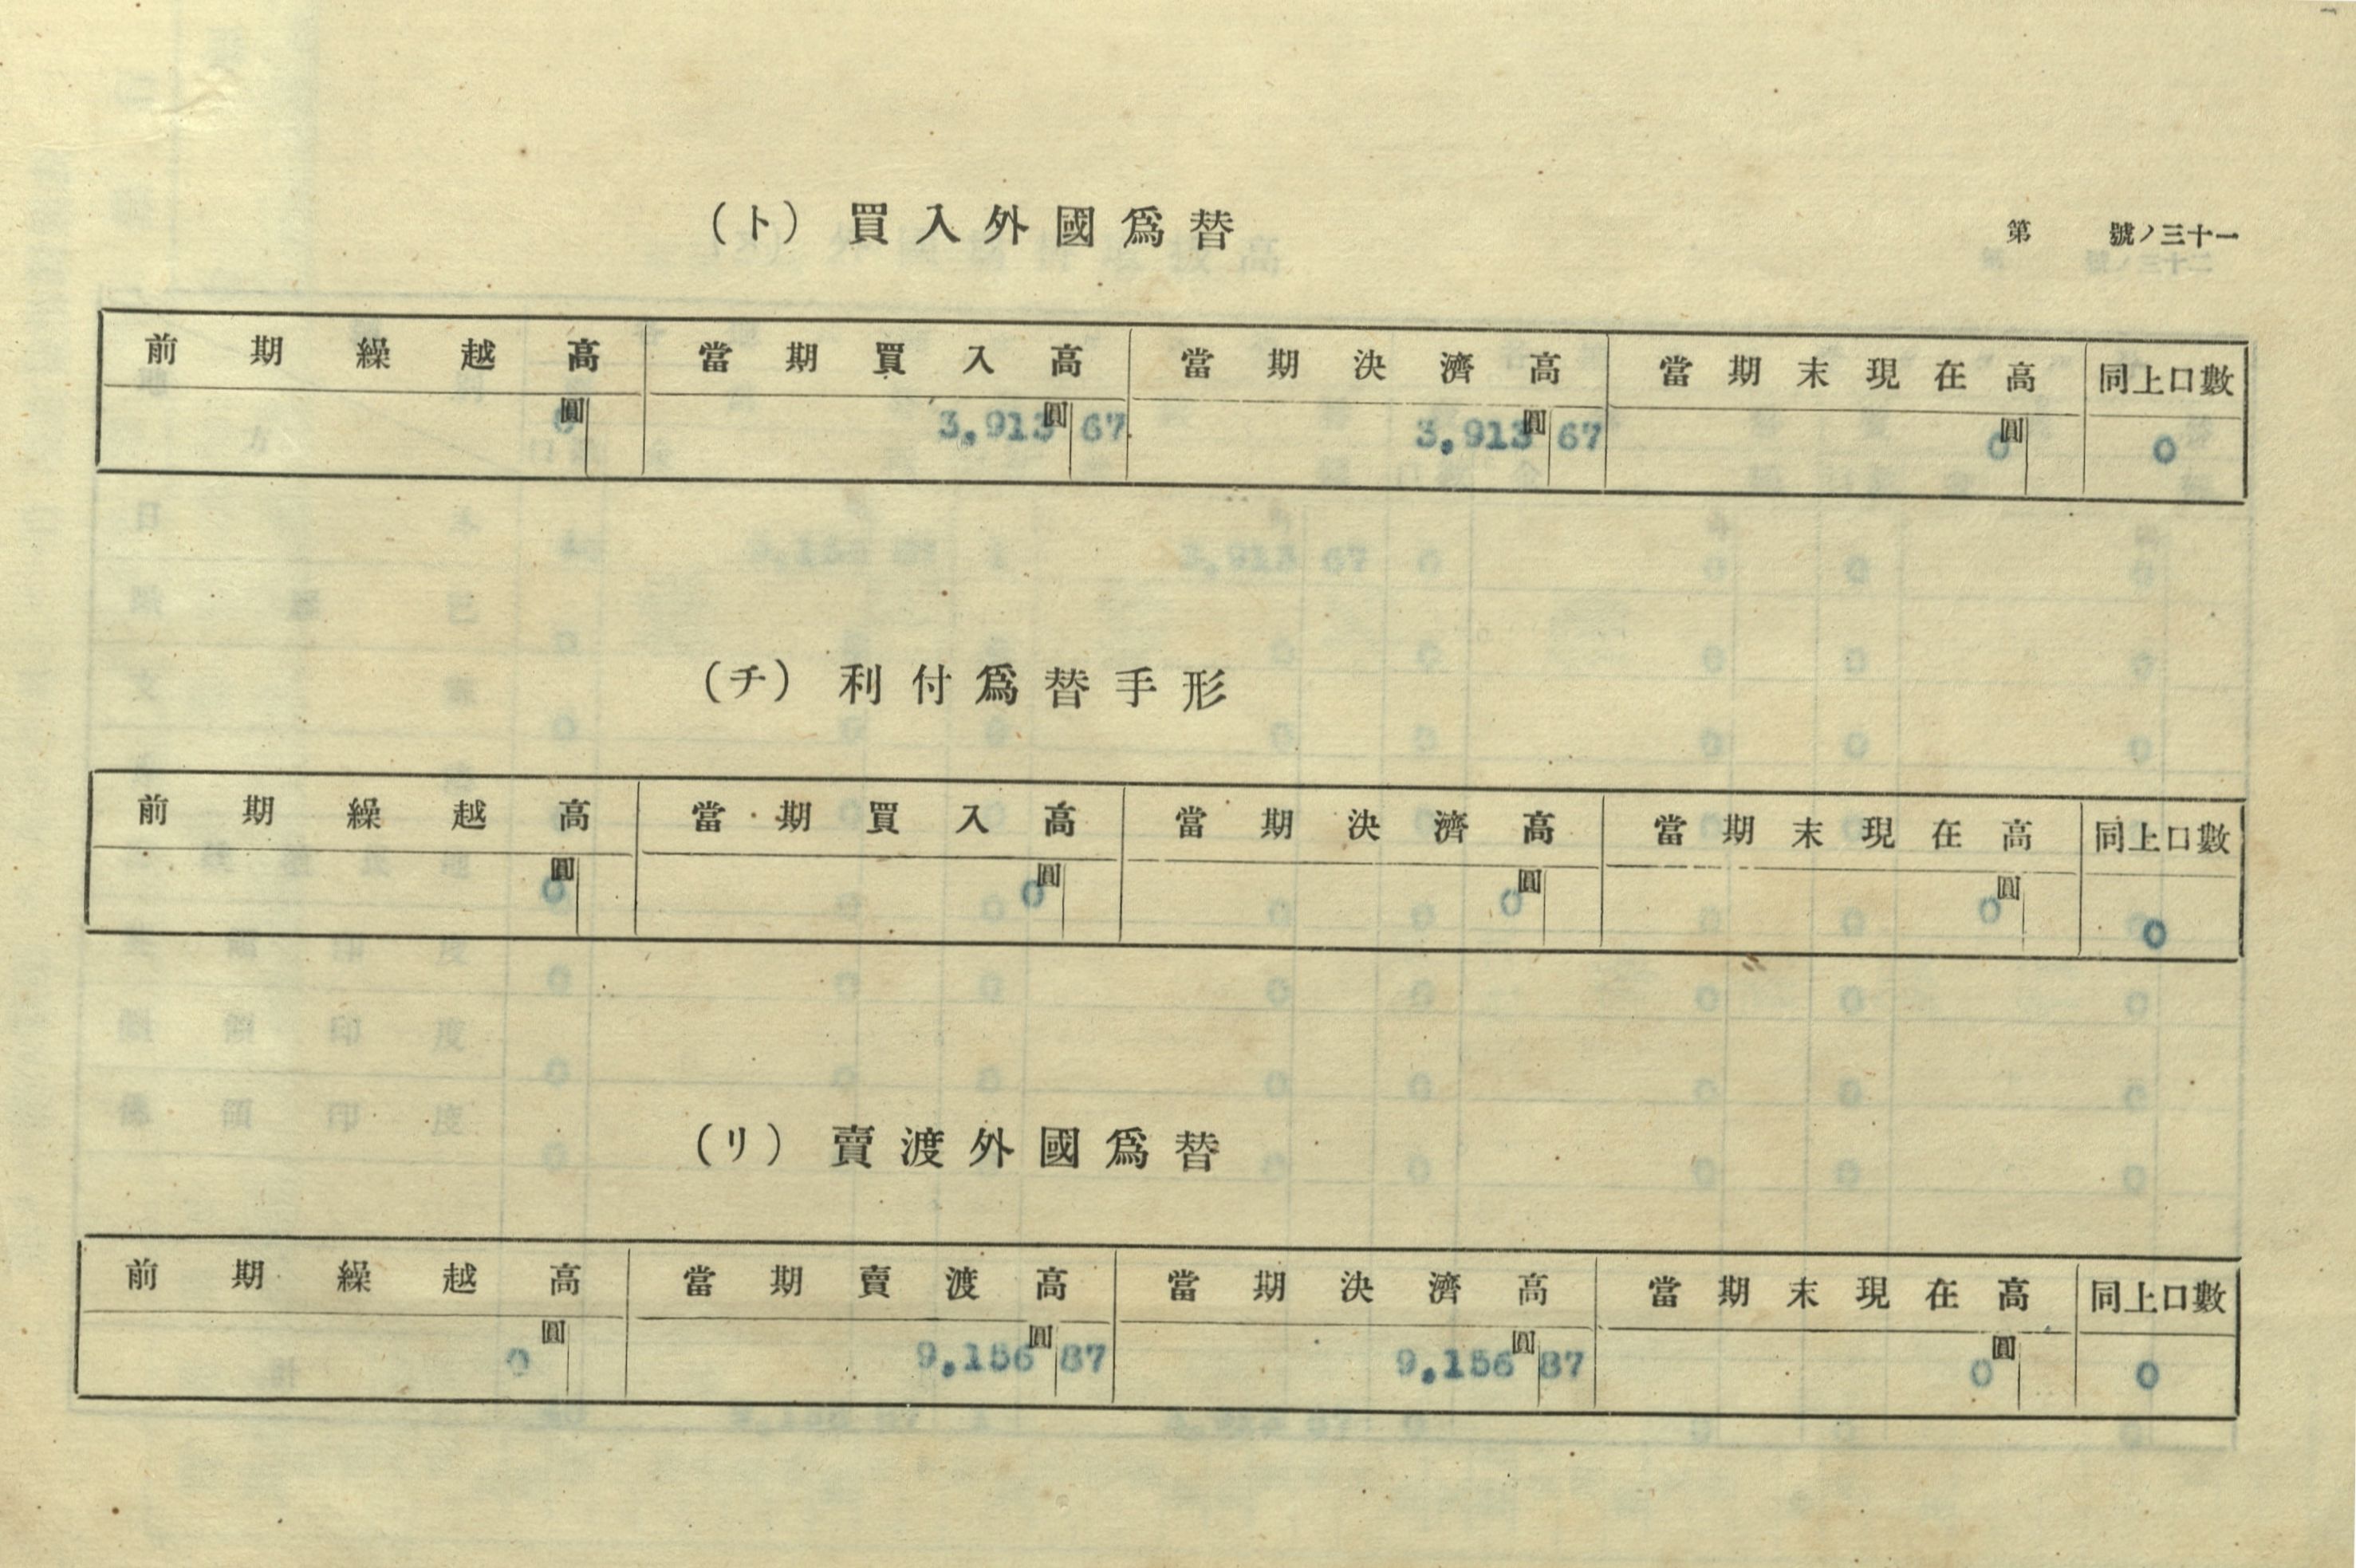 第 號ノ三十一
(ト) 買入外國爲替
前期繰越高 當期買入高 當期決濟高 當期末現在高 同上口數
圓 圓 圓 圓
0 3,913 67 3,913 67 0 0
(チ) 利付爲替手形
前期繰越高 當期買入高 當期決濟高 當期末現在高 同上口數
圓 圓 圓 圓
0 0 0 0 0
(リ) 賣渡外國爲替
前期繰越高 當期賣渡高 當期決濟高 當期末現在高 同上口數
圓 圓 圓 圓
0 9,156 87 9,156 87 0 0